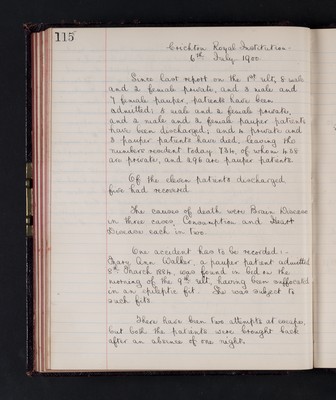 115
Crichton Royal Institution.
6th July 1900
Since last report on the 1st ult, 8 male
and 2 female private, and 3 male and
7 female pauper, patients have been
admitted; 3 male and 2 female private,
and 2 male and 4 female pauper patients
have been discharged; and 4 private and
3 pauper patients have died, leaving the
numbers resident today 734, of whom 438
are private, and 296 are pauper patients.
Of the eleven patients discharged
five had recovered.
The causes of death were Brain Disease
in three cases, Consumption and Heart
Disease each in two.
One accident has to be recorded:-
Mary Ann Walker, a pauper patient admitted
8th March 1884, was found in bed on the
morning of the 9th ult, having been suffocated
in an epileptic fit. She was subject to
such fits.
There have been two attempts at escape,
but both the patients were brought back
after an absence of one night.